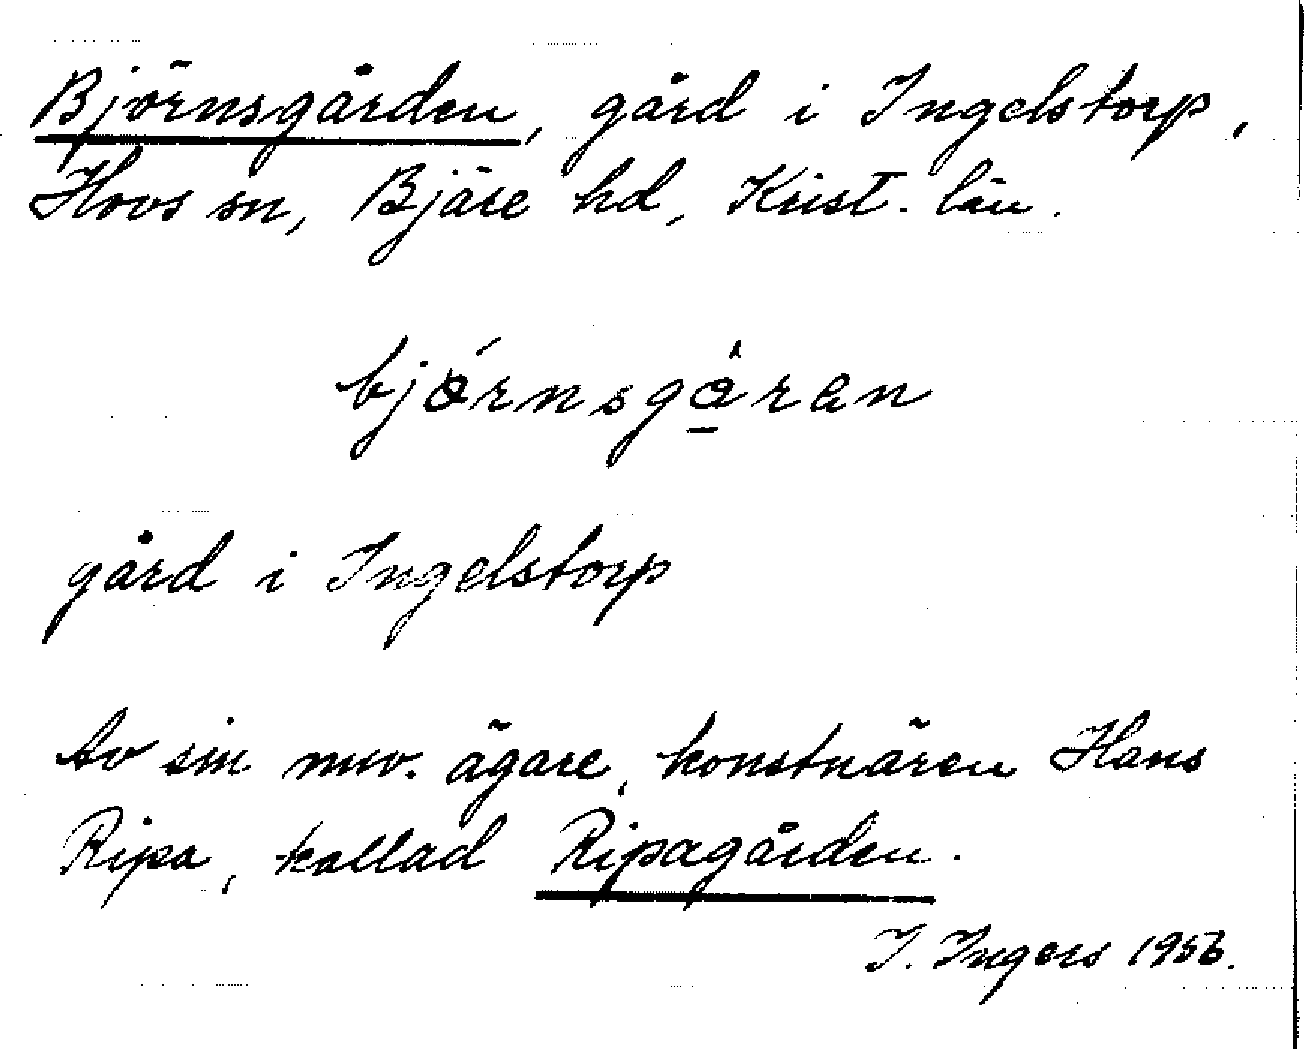 Björnsgården, gård i Ingelstorp,
Hovs sn, Bjäre hd, Krist. län.
bjǿrnsgå̱ran
gård i Ingelstorp
Av sin nuv. ägare, konstnären Hans
Ripa, kallad Ripagården.
I. Ingers 1956.